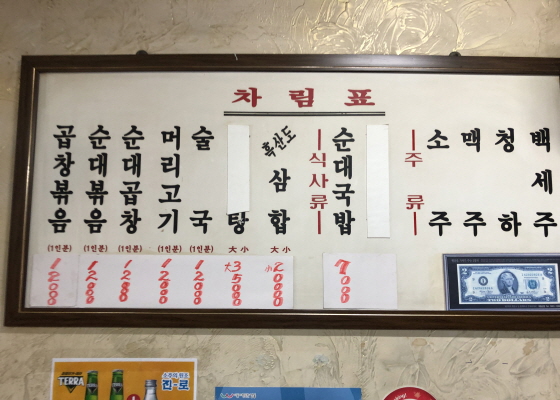 차림표
곱창볶음
(1인분)
12000
순대볶음
(1인분)
12000
순대곱창
(1인분)
12000
머리고기
(1인분)
12000
술국
(1인분)
12000
탕
大 小
大 35000
흑산도
삼합
大 小
小 20000
식사류
순대국밥
7000
주류
소주
맥주
청하
백세주
2
TWO DOLLARS
TERRA
진로